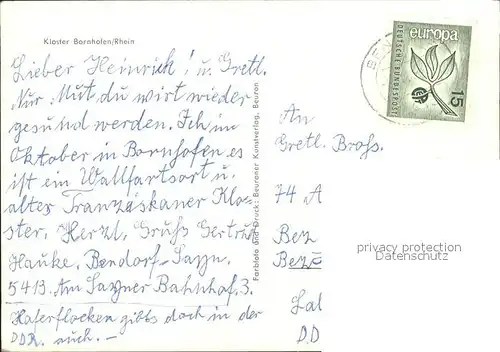 Kloster Bornhofen/Rhein
Lieber Heinrich! u. Gretl.
Nur Mut du wirt wieder
gesund werden. Ich im
Oktober in Bornhofen es
ist ein Wallfartsort u.
altes Franziskaner Klo-
ster. Herzl. Gruß Gertrud
Hauke. Bendorf-Sayn.
5413. Am Sayner Bahnhof. 3.
Haferflocken gibts doch in der
DDR. auch. —
Farbfoto und Druck: Beuroner Kunstverlag, Beuron
europa
DEUTSCHE BUNDESPOST
15
CEPT
BEN
An
Gretl. Brohs.
74 A
Bez
Bez
privacy protection
Datenschutz
Lal
DD